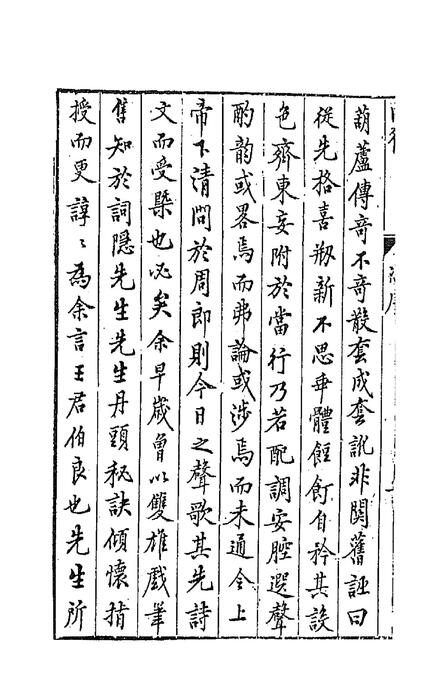 葫蘆傳奇不奇散套成套訛非關舊誣曰
從先格喜刱新不思乖體餖飣自矜其設
色齊東妄附於當行乃若配調安腔選聲
酌韵或畧焉而弗論或涉焉而未通令上
帝下清問於周郎則今日之聲歌其先詩
文而受槩也必矣余早歲曾以雙雄戲筆
售知於詞隱先生先生丹頭秘訣傾懷指
授而更諄〻為余言王君伯良也先生所